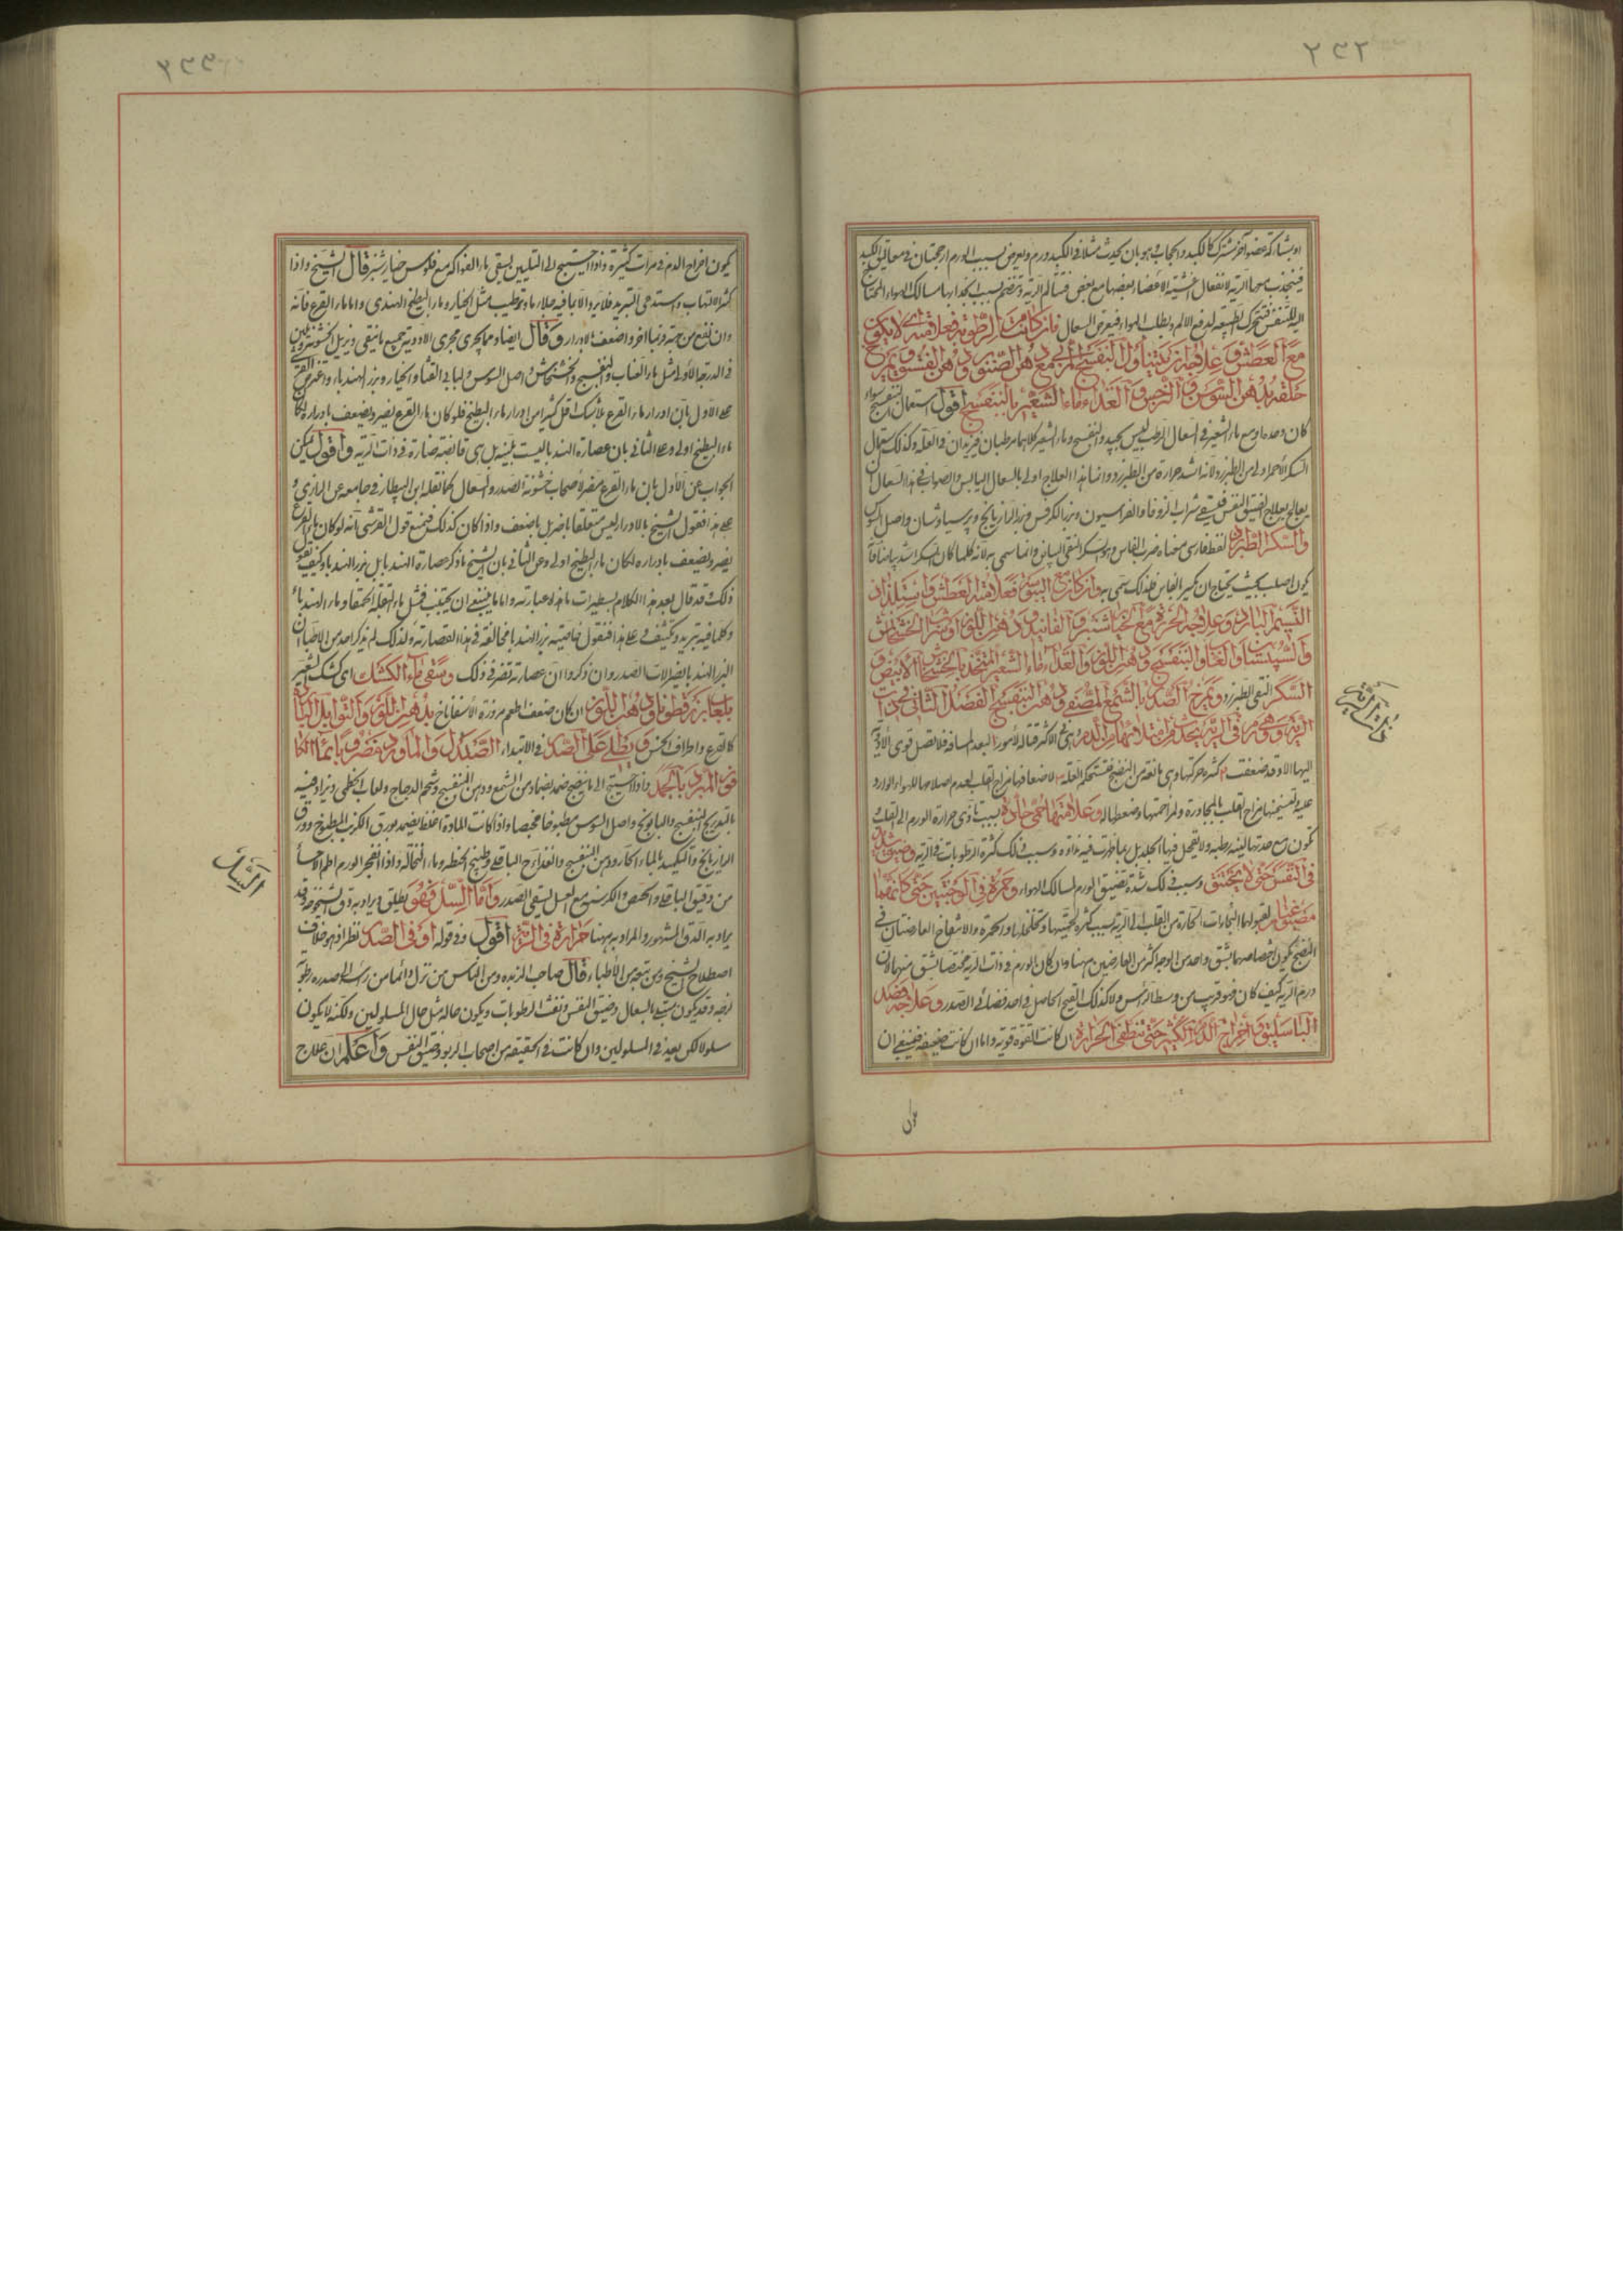 او بشاركة عضو آخر مشترك كالكبد والحجاب وهو بان يحدث مثلا فى الكبد ورم ويعرض بسبب الورم ارجحنان فى معاليق الكبد
فينجذب بها الرية لاتصال اغشية الاعضاء بعضها مع بعض فتتألم الرية وتنضم بسبب انجذابها مسالك الهواء المحتاج
اليه للتنفس فتتحرك الطبيعة لدفع الالم وبطلب الهواء فيعرض السعال فان كان من الرطوبة فعلامته ان لا يكون
مع العطش وعلاجه ان يتناول البنفسج المربى مع دهن الصنوبر ودهن الفستق ويمرخ
حلقه بدهن السوسن والنرجس والغذاء ماء الشعير بالبنفسج اقول استعمال البنفسج سواء
كان وحده او مع ماء الشعير فى السعال الرطب ليس بجيد والبنفسج وماء الشعير كلاهما مرطبان فيزيدان فى العلة وكذلك استعمال
السكر الاحمر اولى من الطبرزد لانه اشد حرارة من الطبرزد وانما هذا العلاج اولى بالسعال اليابس والصواب فى هذا السعال ان
يعالج بعلاج الضيق النفس فيسقى شراب الزوفا والفراسيون وبزر الكرفس وبزر الرازيانج وبرسياوشان واصل السوس
والسكر الطبرزد لفظ فارسى معناه ضرب الفاس وهو السكر النقى البياض وانما سمى به لانه كلما كان السكر اشد بياضا
يكون اصلب بحيث يحتاج ان يكسر بالفاس فلذلك سمى به وان كان مع اليبس فعلامته العطش واستلذاذ
النسيم البارد وعلاجه الحريرة مع الخيار شنبر والفانيذ ودهن اللوز او شراب الخشخاش
والسبستان والعناب والبنفسج ودهن اللوز والغذاء ماء الشعير المتخذ بالخشخاش الابيض و
السكر النقى الطبرزد ويمرخ الصدر بالشمع المصفى ودهن البنفسج الفصل الثانى فى ذات
الرية وهى ورم فى الرية يحدث من امتلائها من الدم وهى فى الاكثر قتالة لامور البعد المسافة فلا تصل قوى الادوية
اليها الا وقد ضعفت كثرة حركتها وهى مانعة من النضج فتستحكم العلة لاضعافها مزاج القلب لعدم اصلاحها للهواء الوارد
عليه ولتسخينها مزاج القلب بالمجاورة ولمزاحمتها وضغطها له وعلامتها حمى حادة بسبب تادى حرارة الورم الى القلب
تكون مع حدتها لينة رطبة ولا يقحل فيها الجلد بل ربما ظهرت فيه نداوة وسبب ذلك كثرة الرطوبات فى الرية وضيق شديد
فى النفس حتى لا يختنق وسبب ذلك شدة تضييق الورم لمسالك الهواء وحمرة فى الوجنتين حتى كانهما
مصبوغتان لقبولهما البخارات الحارة من القلب الى الرية بسبب كثرة لحميتها وتخلخلها والحمرة والانتفاخ العارضتان فى
النضج يكون اختصاصهما بشق واحد من الوجه اكثر من العارضين ههنا وان كان الورم فى ذات الرية مختصا بشق منها لان
ورم الرية كيف كان فهو قريب من وسط الراس ولا كذلك القيح الحاصل فى احد فضائى الصدر وعلاجه فصد
الباسليق واخراج الدم الكثير حتى تنطفى الحرارة ان كانت القوة قوية واما ان كانت ضعيفة فينبغى ان
ذات الرية
يكون
يكون اخراج الدم فى مرات كثيرة واذا احتيج الى التليين يسقى ماء الفواكه مع فلوس خيار شنبر قال الشيخ واذا
كثر الالتهاب واستدعى التبريد فلا يبرد الا بما فيه جلاء ما وترطيب مثل الخيار وماء البطيخ الهندى واما ماء القرع فانه
وان نفع من جهة فربما اضر واضعف بالادرار وقال ايضا ومما يجرى مجرى الادوية جميع ما ينقى ويزيل الخشونة ويلين
فى الدرجة الاولى مثل ماء العناب والبنفسج والخشخاش واصل السوس ولباب القثا والخيار وبزر الهندباء واعترض القرشى
على الاول بان ادرار ماء القرع لا شك اقل كثيرا من ادرار ماء البطيخ فلو كان ماء القرع يضر ويضعف بادراره لكان
ماء البطيخ اولى وعلى الثانى بان عصارة الهندبا ليست ملينة بل هى قابضة ضارة فى ذات الرية واقول يمكن
الجواب عن الاول بان ماء القرع مضرة اصحاب خشونة الصدر والسعال كما نقله ابن البيطار فى جامعه عن الرازى و
على هذا فقول الشيخ بالادرار ليس متعلقا باضر بل باضعف واذا كان كذلك فنمنع قول القرشى بانه لو كان ماء القرع
يضر ويضعف بادراره لكان ماء البطيخ اولى وعن الثانى بان الشيخ ما ذكر عصارة الهندبا بل بزر الهندبا وكيف يقول
ذلك وقد قال بعد هذا الكلام بسطيرات ما هذه عبارته واما ما ينبغى ان يجتنب فمثل ماء البقلة الحمقا وماء الهندباء
وكل ما فيه تبريد وتكثيف فعلى هذا فنقول خاصية بزر الهندبا مخالفة فى هذا لعصارته ولذلك لم يذكر احد من الاطباء ان
البزر الهندبا يضر لالات الصدر وان ذكروا ان عصارته تضر فى ذلك وسقى ماء الكشك اى كشك الشعير
بلعاب بزر قطونا ودهن اللوز ان كان ضعف اطعم مزورة الاسفاناخ بدهن اللوز والتوابل اليابسة
كالقرع واطراف الخس ويطلى على الصدر فى الابتداء الصندل والماورد مضروبا بماء الكا
فور المبرد بالجمد واذا احتيج الى ما ينضج ضمد بضماد من الشمع ودهن البنفسج وشحم الدجاج ولعاب الخطمى ويزاد فيه
بالتدريج البنفسج والبابونج واصل السوس مطبوخا مخبصا واذا كانت المادة اغلظ يضمد بورق الكرنب المطبوخ وورق
الرازيانج والتكميد بالماء الحار ودهن البنفسج والغذاء الباقلى وطبيخ الحنطة وماء النخالة واذا انفجر الورم اطعم الاحسا
من دقيق الباقلى والحمص والكرسنة مع العسل لينقى الصدر واما السل فهو يطلق ويراد به دق الشيخوخة وقد
يراد به الدق المشهور والمراد به ههنا حرارة فى الرية اقول وفى قوله او فى الصدر نظر اذ هو خلاف
اصطلاح الشيخ ومن تبعه من الاطباء قال صاحب الزبدة ومن الناس من تنزل دائما من راسه الى صدره رطوبة
لزجة وقد يكون مبتلى بالسعال وضيق النفس ونفث الرطوبات ويكون حاله مثل حال المسلولين ولكنه لا يكون
سلولا لكن يعد فى المسلولين وان كانت فى الحقيقة من اصحاب الربو وضيق النفس واعلم ان علاج